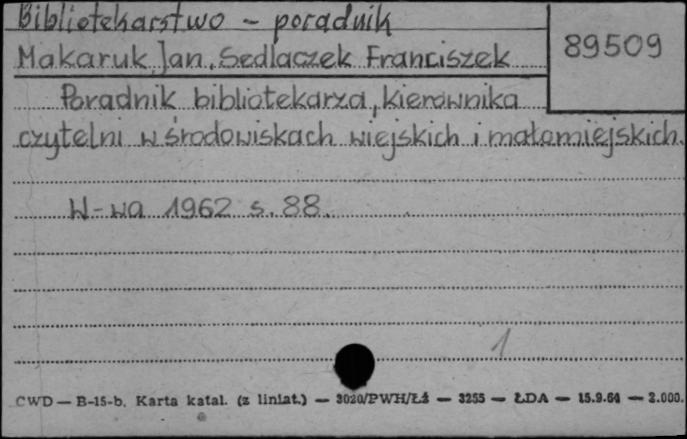 Bibliotekarstwo - poradnik
89509
Makaruk Jan, Sedlaczek Franciszek
Poradnik bibliotekarza, kierownika
czytelni w środowiskach wiejskich i małomiejskich.
W-wa 1962 s. 88.
1
CWD — B-15-b. Karta katal. (z liniat.) — 3020/PWH/Łż — 3255 — ŁDA — 15.9.64 — 2.000.